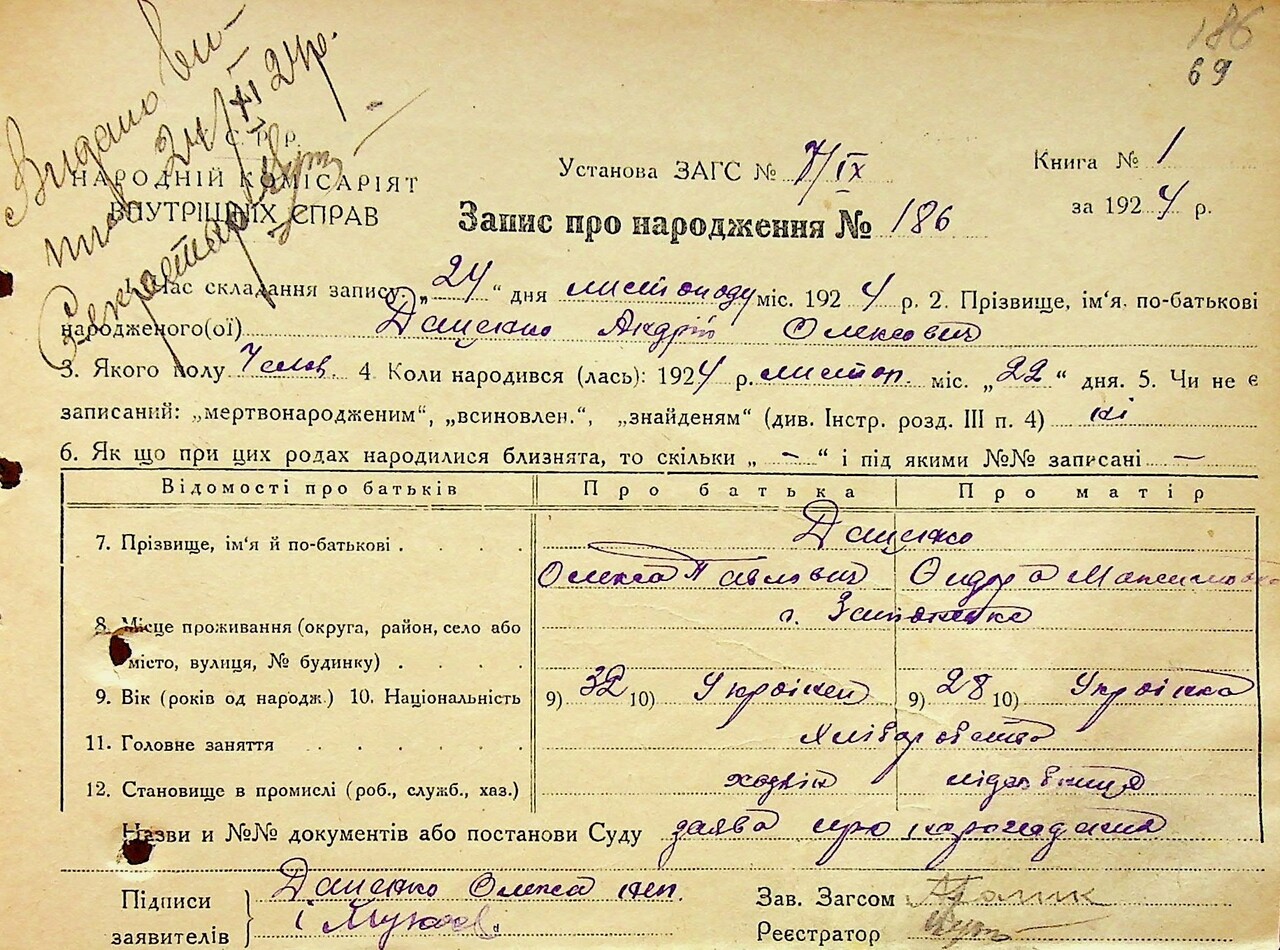 186
69
Видано ви-
тяг 24/XI 24р.
Секретар
С. Р. Р.
НАРОДНІЙ КОМІСАРІЯТ
ВНУТРІШНІХ СПРАВ
Установа ЗАГС № 7/IX
Книга № 1
за 1924 р.
Запис про народження № 186
1. Час складання запису. „24“ дня листопаду міс. 1924 р. 2. Прізвище, ім'я, по-батькові
народженого(ої) Даценко Андрій Олексович
3. Якого полу Челов. 4. Коли народився (лась): 1924 р. листоп. міс. „22“ дня. 5. Чи не є
записаний: „мертвонародженим“, „всиновлен.“, „знайденям“ (див. Інстр. розд. III п. 4) ні
6. Як що при цих родах народилися близнята, то скільки „-“ і під якими №№ записані —
Відомості про батьків Про батька Про матір
7. Прізвище, ім'я й по-батькові . . . . Даценко
Олекса Павлович Максимовна
8. Місце проживання (округа, район, село або
місто, вулиця, № будинку) . . . .
9. Вік (років од народж.) 10. Національність 9) 32 10) Українец 9) 28 10) Українка
11. Головне заняття . . . . . . Хліборобство
12. Становище в промислі (роб., служб., хаз.)
Назви и №№ документів або постанови Суду заява про народження
Підписи
заявителів
Даценко Олекса неп.
і
Зав. Загсом
Реєстратор